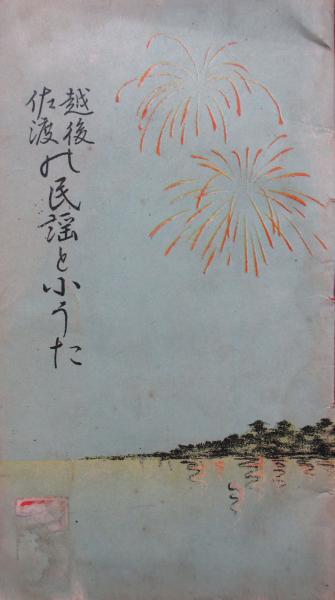 越後
佐渡
の民謡と小うた